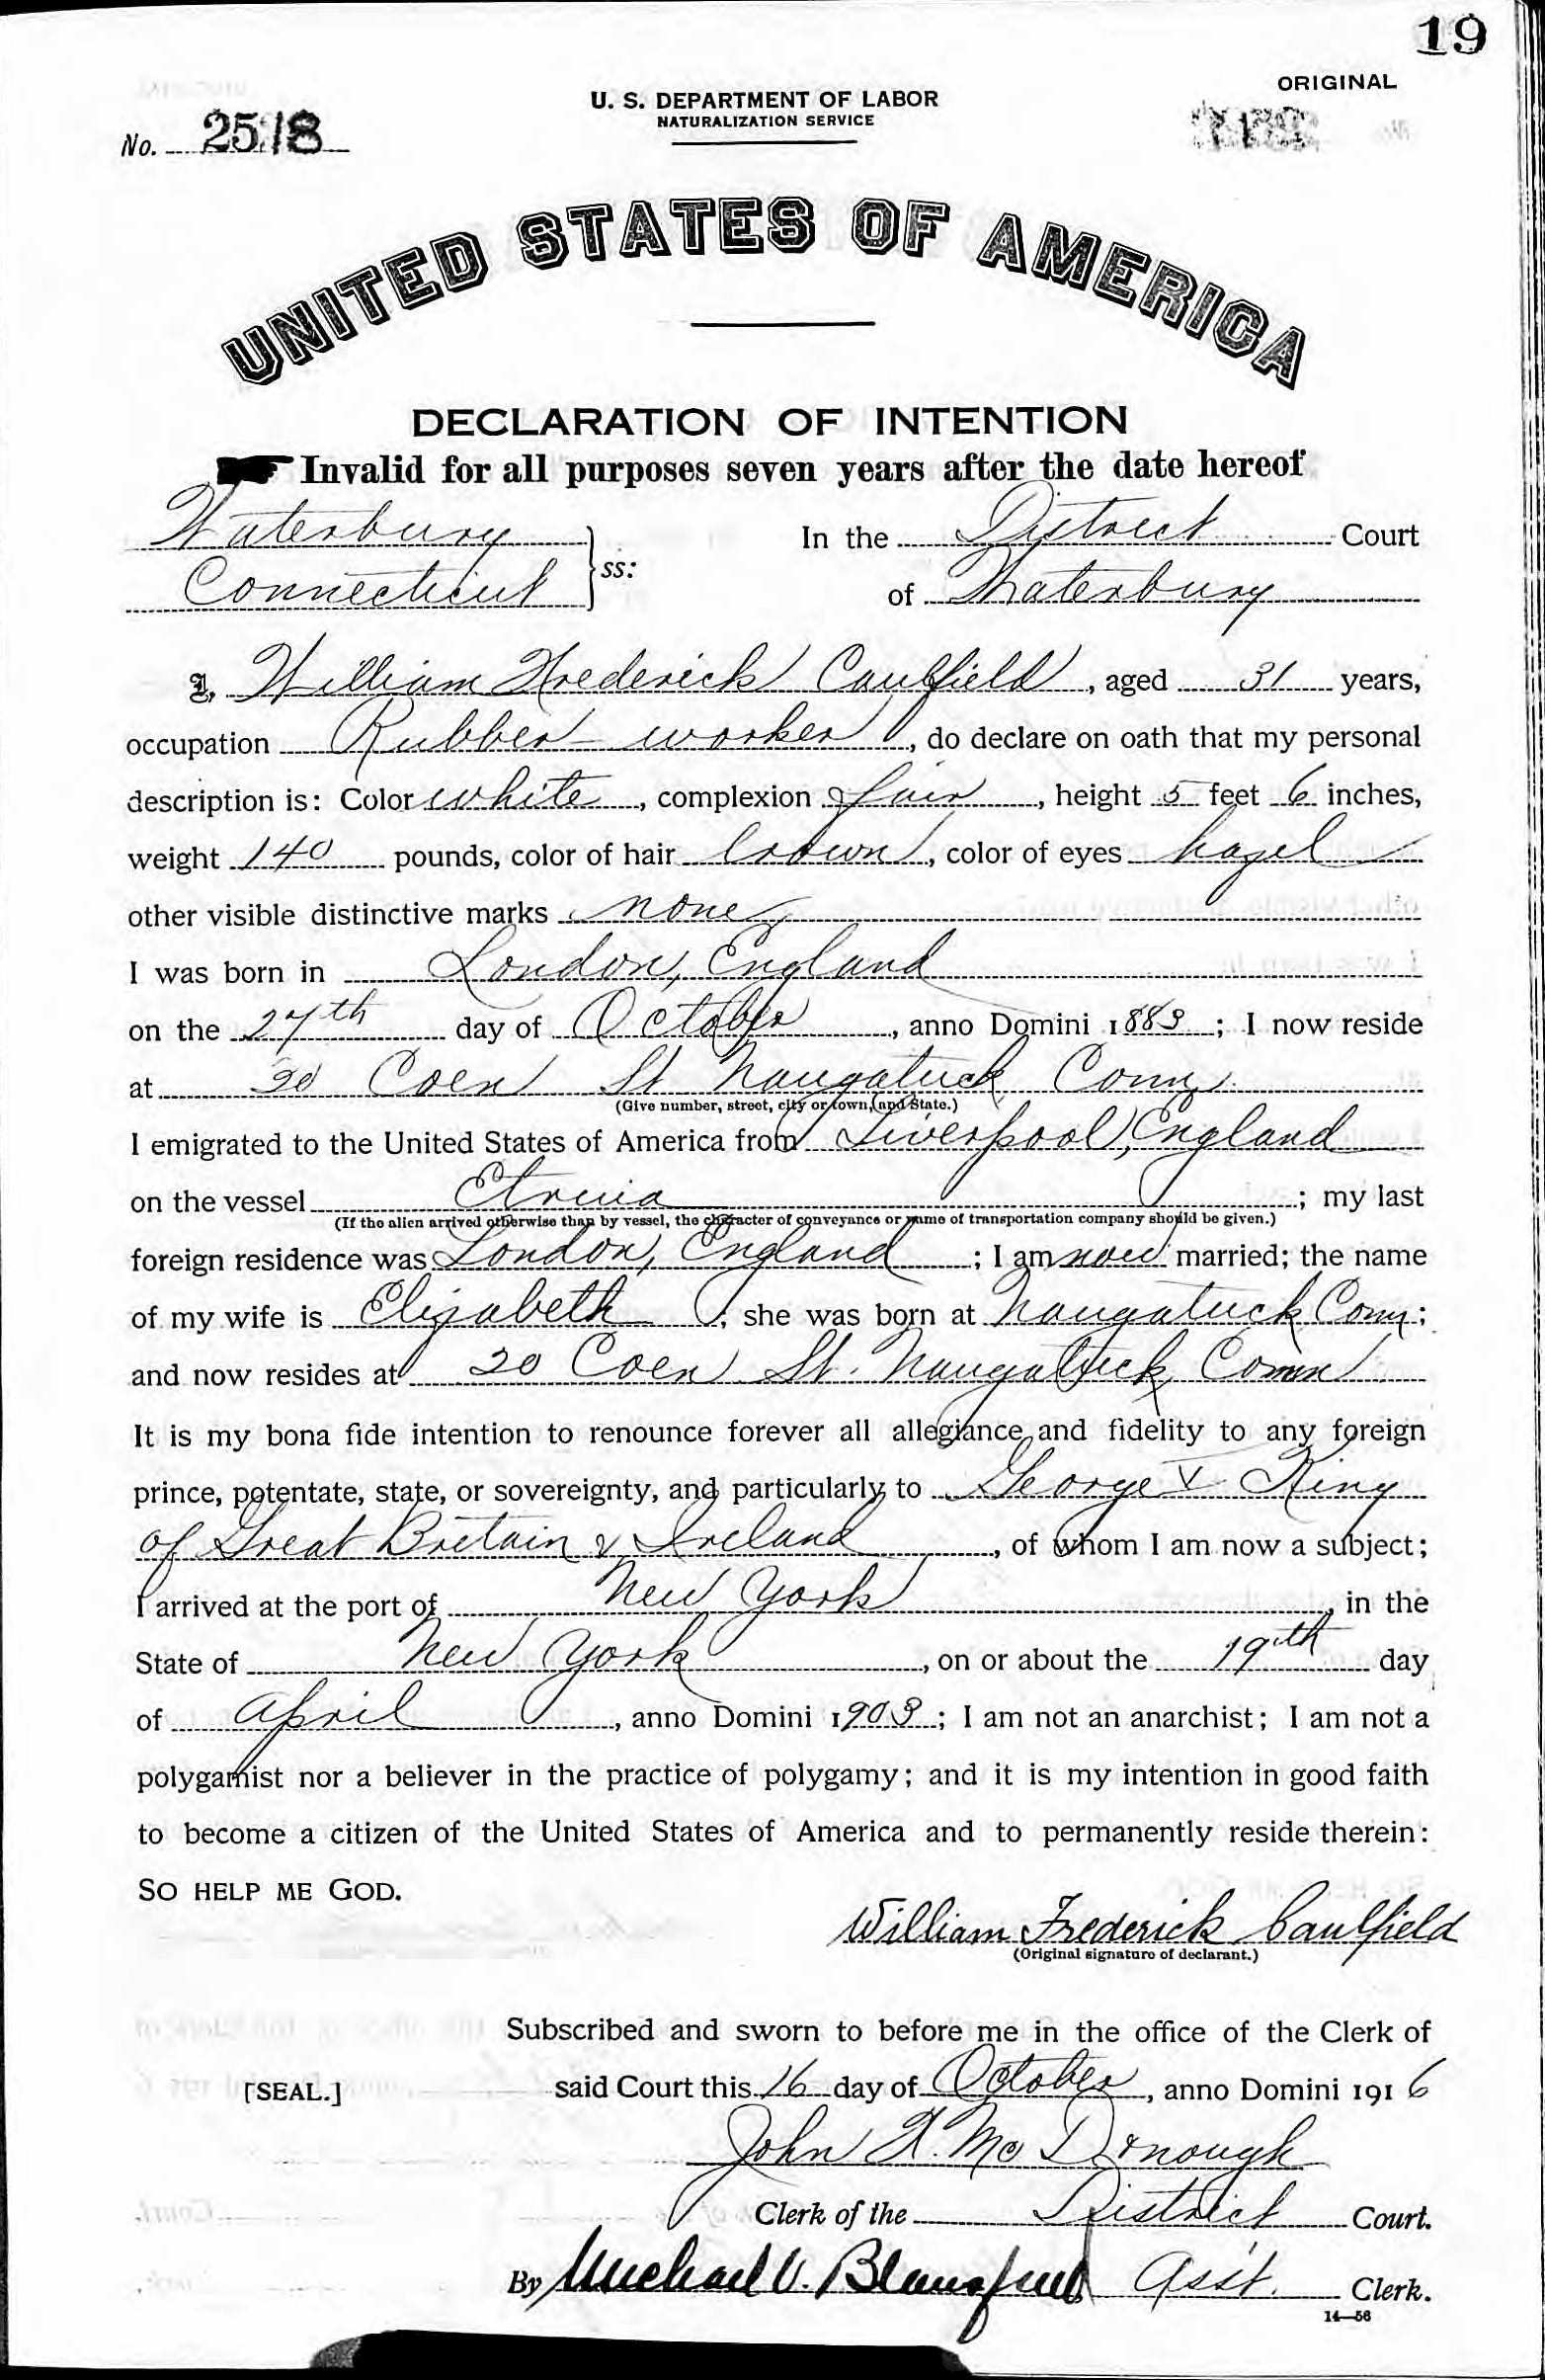 19
ORIGINAL
U. S. DEPARTMENT OF LABOR
NATURALIZATION SERVICE
No. 2518
UNITED STATES OF AMERICA
DECLARATION OF INTENTION
Invalid for all purposes seven years after the date hereof
Waterbury
Connecticut
ss:
In the District Court
of Waterbury
I, William Frederick Caulfield, aged 31 years,
occupation Rubber worker, do declare on oath that my personal
description is: Color white, complexion fair, height 5 feet 6 inches,
weight 140 pounds, color of hair brown, color of eyes hazel
other visible distinctive marks none
I was born in London, England
on the 27th day of October, anno Domini 1883; I now reside
at 20 Coen St Naugatuck Conn.
(Give number, street, city or town, and State.)
I emigrated to the United States of America from Liverpool, England
on the vessel Etruia; my last
(If the alien arrived otherwise than by vessel, the character of conveyance or name of transportation company should be given.)
foreign residence was London, England; I am now married; the name
of my wife is Elizabeth; she was born at Naugatuck Conn;
and now resides at 20 Coen St. Naugatuck, Conn
It is my bona fide intention to renounce forever all allegiance and fidelity to any foreign
prince, potentate, state, or sovereignty, and particularly to George V King
of Great Britain & Ireland, of whom I am now a subject;
I arrived at the port of New York, in the
State of New York, on or about the 19th day
of April, anno Domini 1903; I am not an anarchist; I am not a
polygamist nor a believer in the practice of polygamy; and it is my intention in good faith
to become a citizen of the United States of America and to permanently reside therein:
SO HELP ME GOD.
William Frederick Caulfield
(Original signature of declarant.)
Subscribed and sworn to before me in the office of the Clerk of
[SEAL.]
said Court this 16 day of October, anno Domini 1916
John F. McDonough
Clerk of the District Court.
By Michael V. Blansfield Asst. Clerk.
14—56